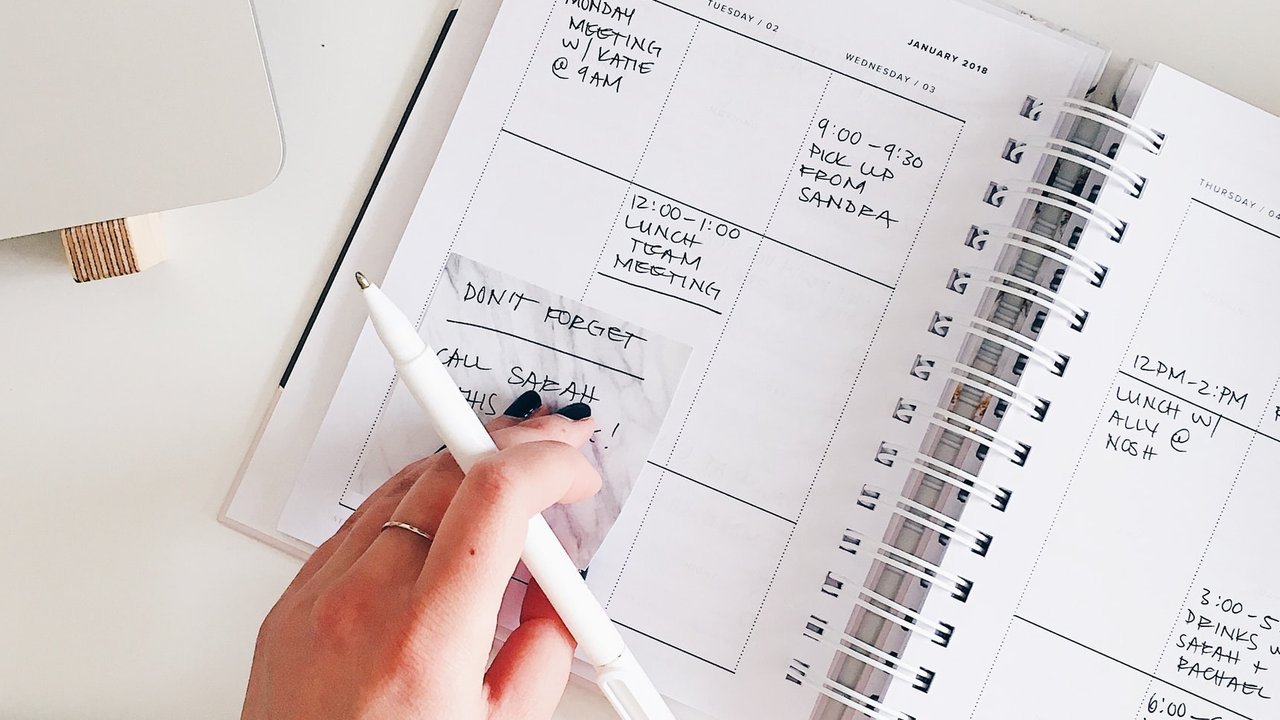 TUESDAY / 02
JANUARY 2018
WEDNESDAY / 03
MONDAY
MEETING
W/ KATIE
@ 9AM
9:00-9:30
PICK UP
FROM
SANDRA
12:00-1:00
LUNCH
TEAM
MEETING
DON'T FORGET
CALL SARAH
THIS
THURSDAY / 04
12PM-2:PM
LUNCH W/
ALLY @
NOSH
3:00-5
DRINKS W
SARAH +
RACHAEL
6:00